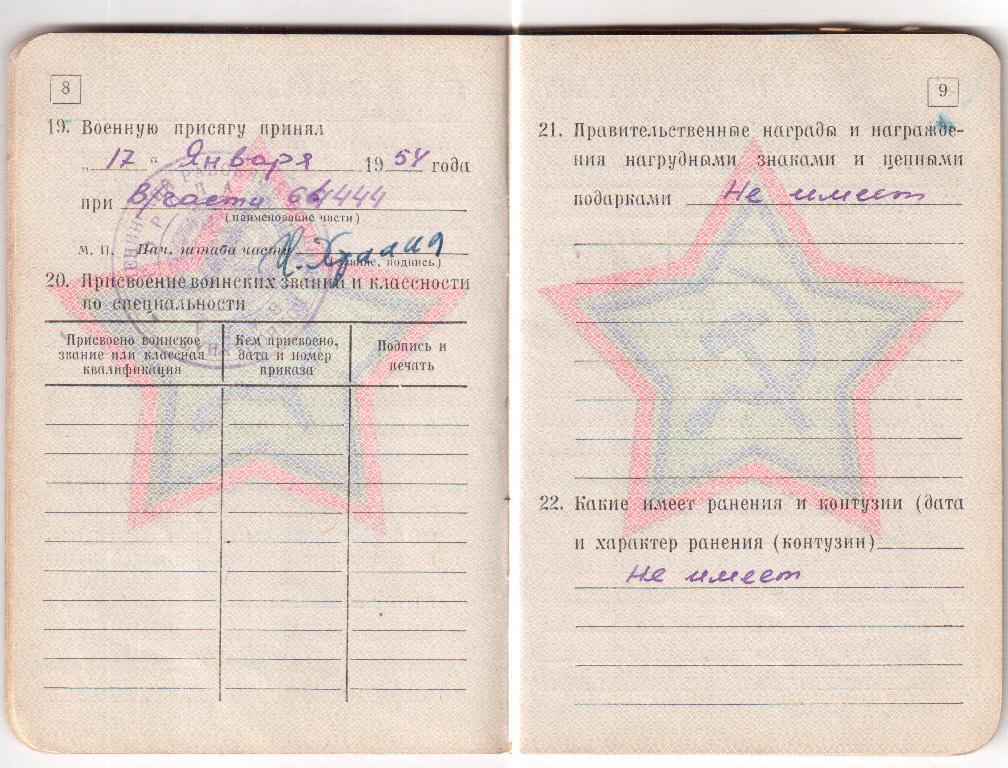 8
19. Военную присягу принял
„ 17 “ Января 19 54 года
при В/части 64444
(наименование части)
М. П. Нач. штаба части
подпись)
20. Присвоение воинских званий и классности
по специальности
Присвоено воинское звание или классная квалификация
Кем присвоено, дата и номер приказа
Подпись и печать
9
21. Правительственные награды и награжде-
ния нагрудными знаками и ценными
подарками Не имеет
22. Какие имеет ранения и контузии (дата
и характер ранения (контузии)
Не имеет